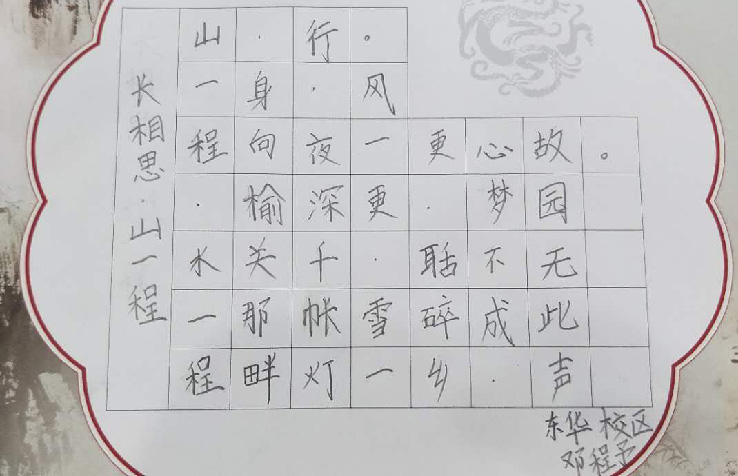 长相思·山一程
山一程·水一程
·身向榆关那畔
行·夜深千帐灯
。风一更·雪一
更·聒碎乡
心梦不成·
故园无此声
。
东华校区
邓程予